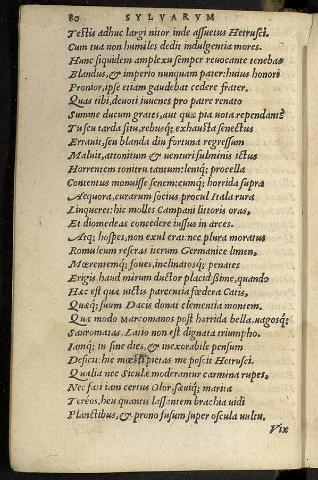 80 SYLVARVM
Testis adhuc largi nitor inde assuetus Hetrusci.
Cum tua non humiles dedit indulgentia mores.
Hunc siquidem amplexu semper reuocante tenebas
Blandus, & imperio nunquam pater: huius honori
Pronior, ipse etiam gaudebat cedere frater.
Quas tibi, deuoti iuuenes pro patre renato
Summe ducum grates, aut quæ pia uota rependant?
Tu seu tarda situ, rebusq; exhausta senectus
Errauit, seu blanda diu fortuna regressum
Maluit, attonitum & uenturi fulminis ictus
Horrentem tonitru tantum: leniq; procella
Contentus monuisse senem: cumq; horrida supra
Aequora, curarum socius procul Itala rura
Linqueret: hic molles Campani littoris oras,
Et diomedeas concedere iussus in arces.
Atq; hospes, non exul erat: nec plura moratus
Romuleum reseras iterum Germanice limen.
Mœrentemq; foues, inclinatosq; penates
Erigis haud mirum ductor placidißime, quando
Hæc est quæ uictis parcentia fœdera Catis,
Quæq; suum Dacis donat clementia montem.
Quæ modo Marcomanos post horrida bella, uagosq;
Sauromatas. Latio non est dignata triumpho.
Iamq; in fine dies, & inexorabile pensum
Deficit: hic mæsti pietas me poscit Hetrusci.
Qualia nec Siculæ moderantur carmina rupes.
Nec fati iam certus Olor, sæuiq; marita
Tereos, heu quantis lassantem brachia uidi
Planctibus, & prono fusum super oscula uultu.
Vix